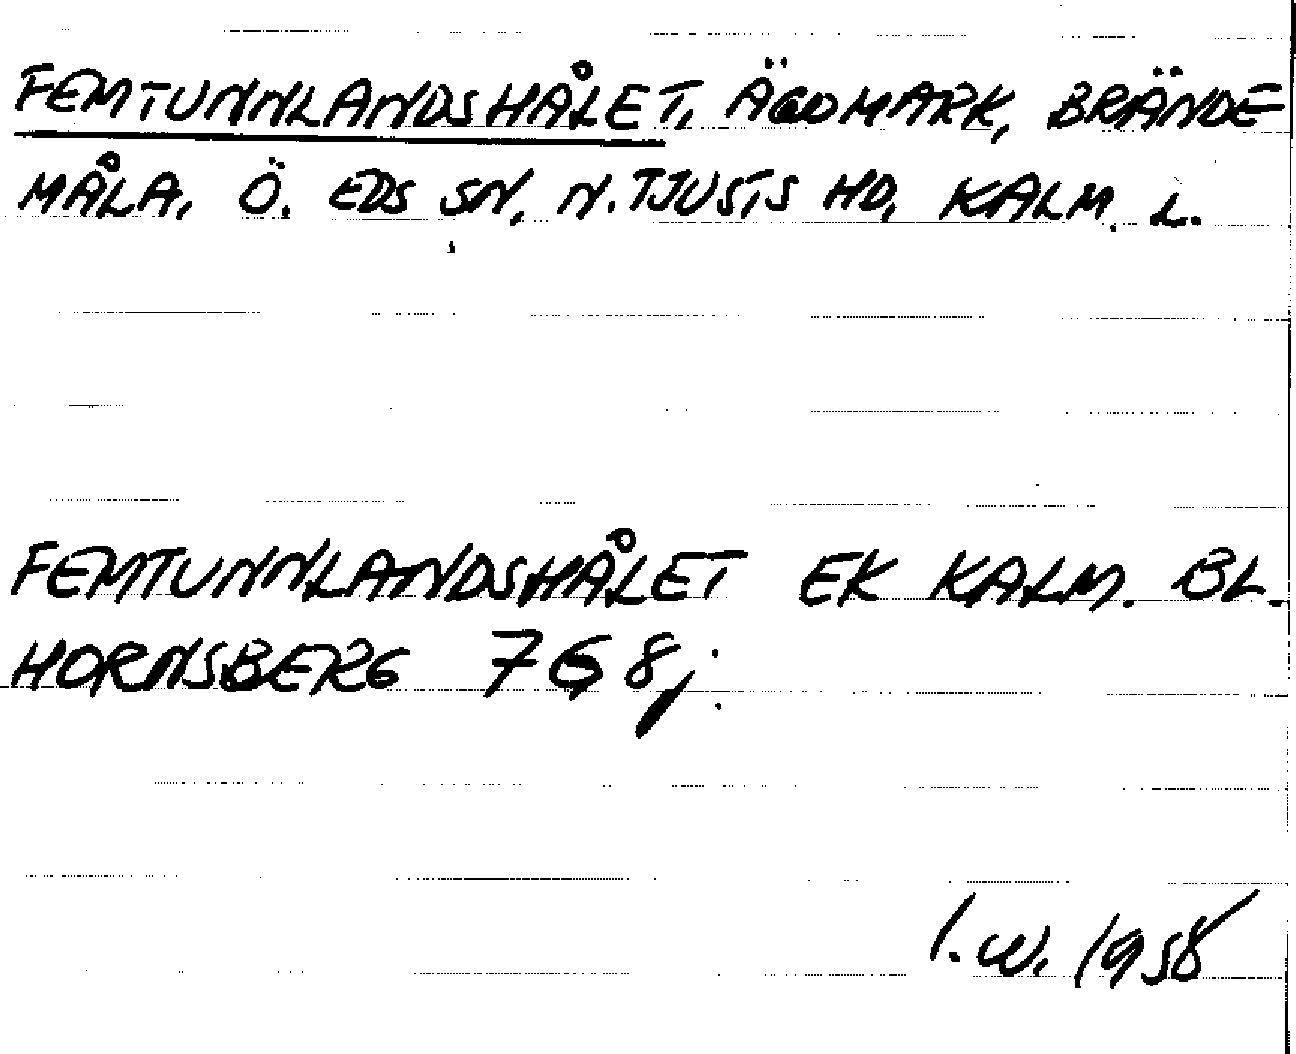 FEMTUNNLANDSHÅLET, ÄGOMARK, BRÄNDE
MÅLA, Ö. EDS SN, N. TJUSTS HD, KALM. L.
FEMTUNNLANDSHÅLET EK KALM. BL.
HORNSBERG 7G8j.
I.W. 1958